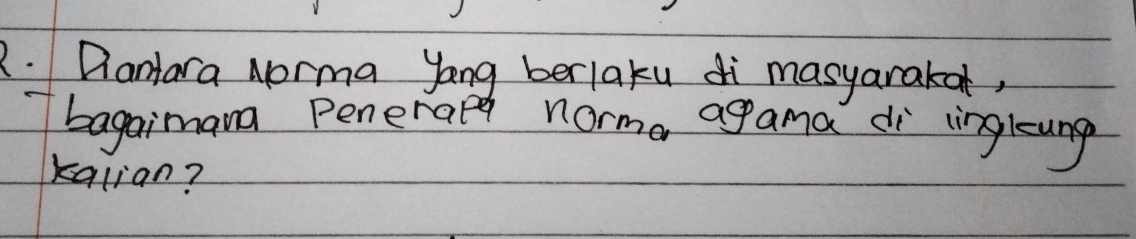 2. Diantara Norma yang berlaku di masyarakat,
bagaimana Penerapa norma agama di lingkung
kalian?